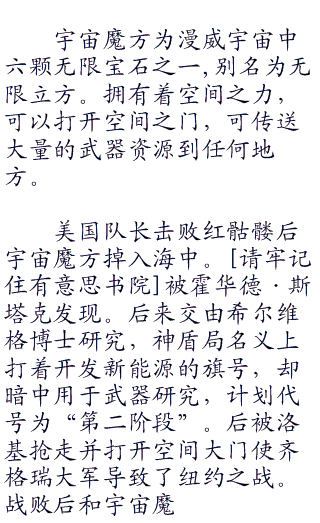 宇宙魔方为漫威宇宙中
六颗无限宝石之一,别名为无
限立方。拥有着空间之力，
可以打开空间之门，可传送
大量的武器资源到任何地
方。
美国队长击败红骷髅后
宇宙魔方掉入海中。[请牢记
住有意思书院]被霍华德·斯
塔克发现。后来交由希尔维
格博士研究，神盾局名义上
打着开发新能源的旗号，却
暗中用于武器研究，计划代
号为“第二阶段”。后被洛
基抢走并打开空间大门使齐
格瑞大军导致了纽约之战。
战败后和宇宙魔